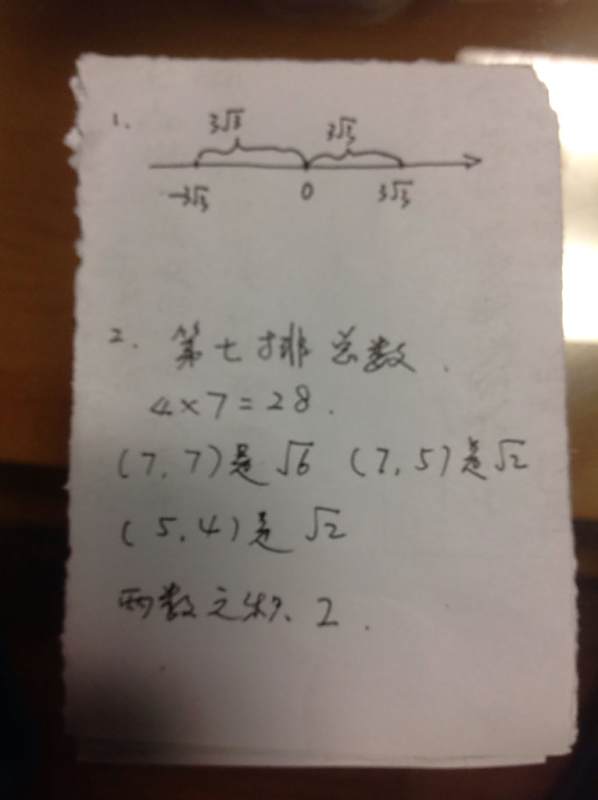 1.
3√3 3√3
-3√3 0 3√3
2. 第七排总数.
4×7=28.
(7,7)是√6 (7,5)是√2
(5,4)是√2
两数之积、2.